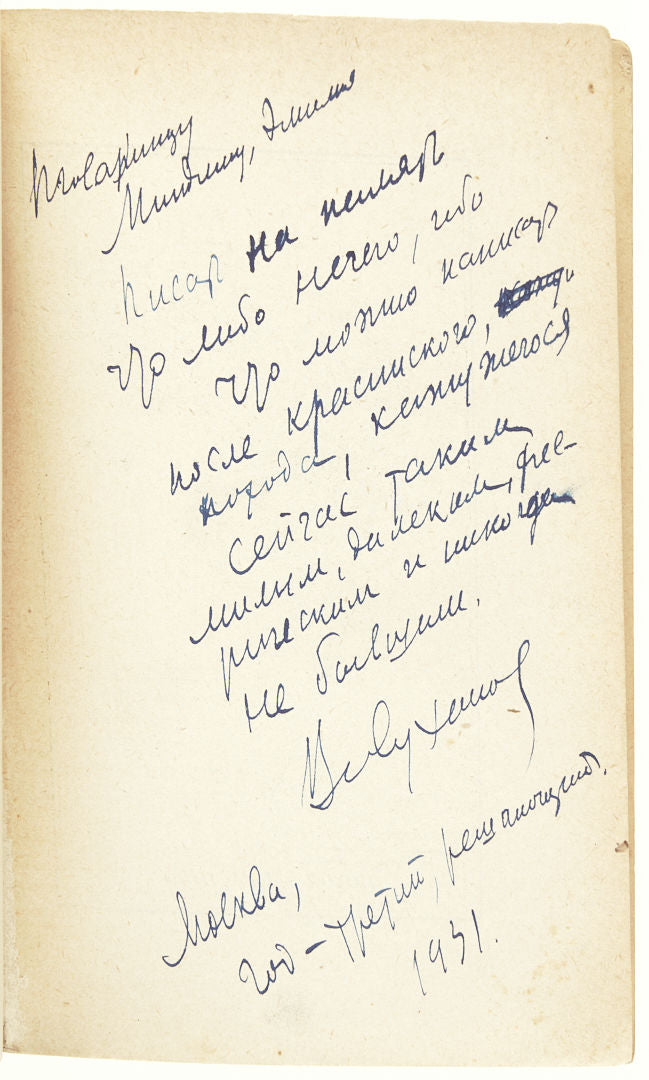 Товарищу
Миндлину, Эмилию
Писать на память
что либо нечего, ибо
что можно написать
после красинского,
похода, кажущегося
сейчас таким
милым, далеким, фее-
рическим и никогда
не бывшим.
Москва,
год – третий, решающий.
1931.